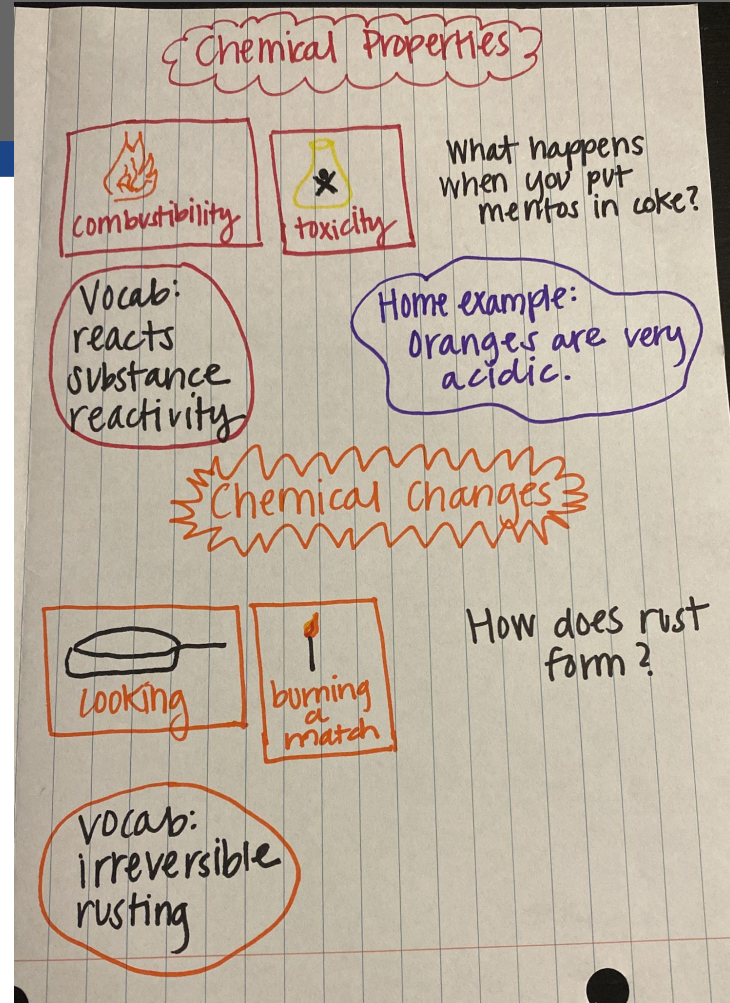 Chemical Properties
combustibility
toxicity
What happens
when you put
mentos in coke?
Vocab:
reacts
substance
reactivity
Home example:
oranges are very
acidic.
Chemical Changes
cooking
burning
a
match
How does rust
form?
vocab:
irreversible
rusting